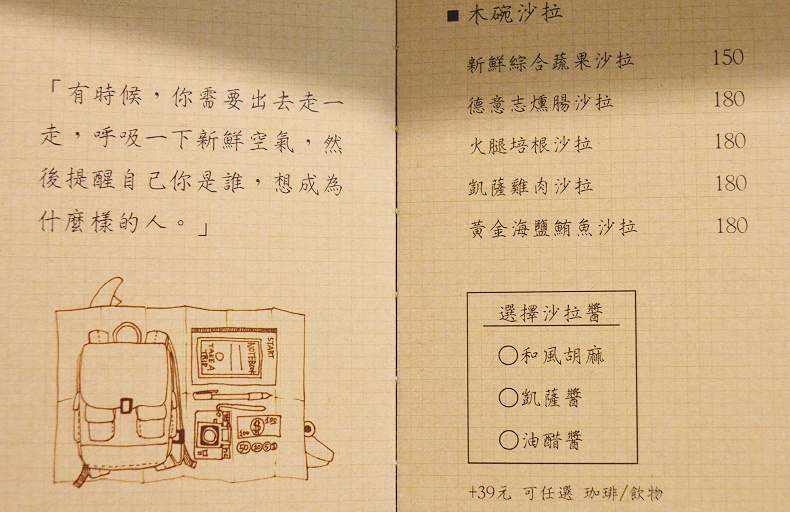 「有時候，你需要出去走一
走，呼吸一下新鮮空氣，然
後提醒自己你是誰，想成為
什麼樣的人。」
START
NOTEBOOK
TAKE A
TRIP
■ 木碗沙拉
新鮮綜合蔬果沙拉 150
德意志燻腸沙拉 180
火腿培根沙拉 180
凱薩雞肉沙拉 180
黃金海鹽鮪魚沙拉 180
選擇沙拉醬
○和風胡麻
○凱薩醬
○油醋醬
+39元 可任選 珈琲/飲物